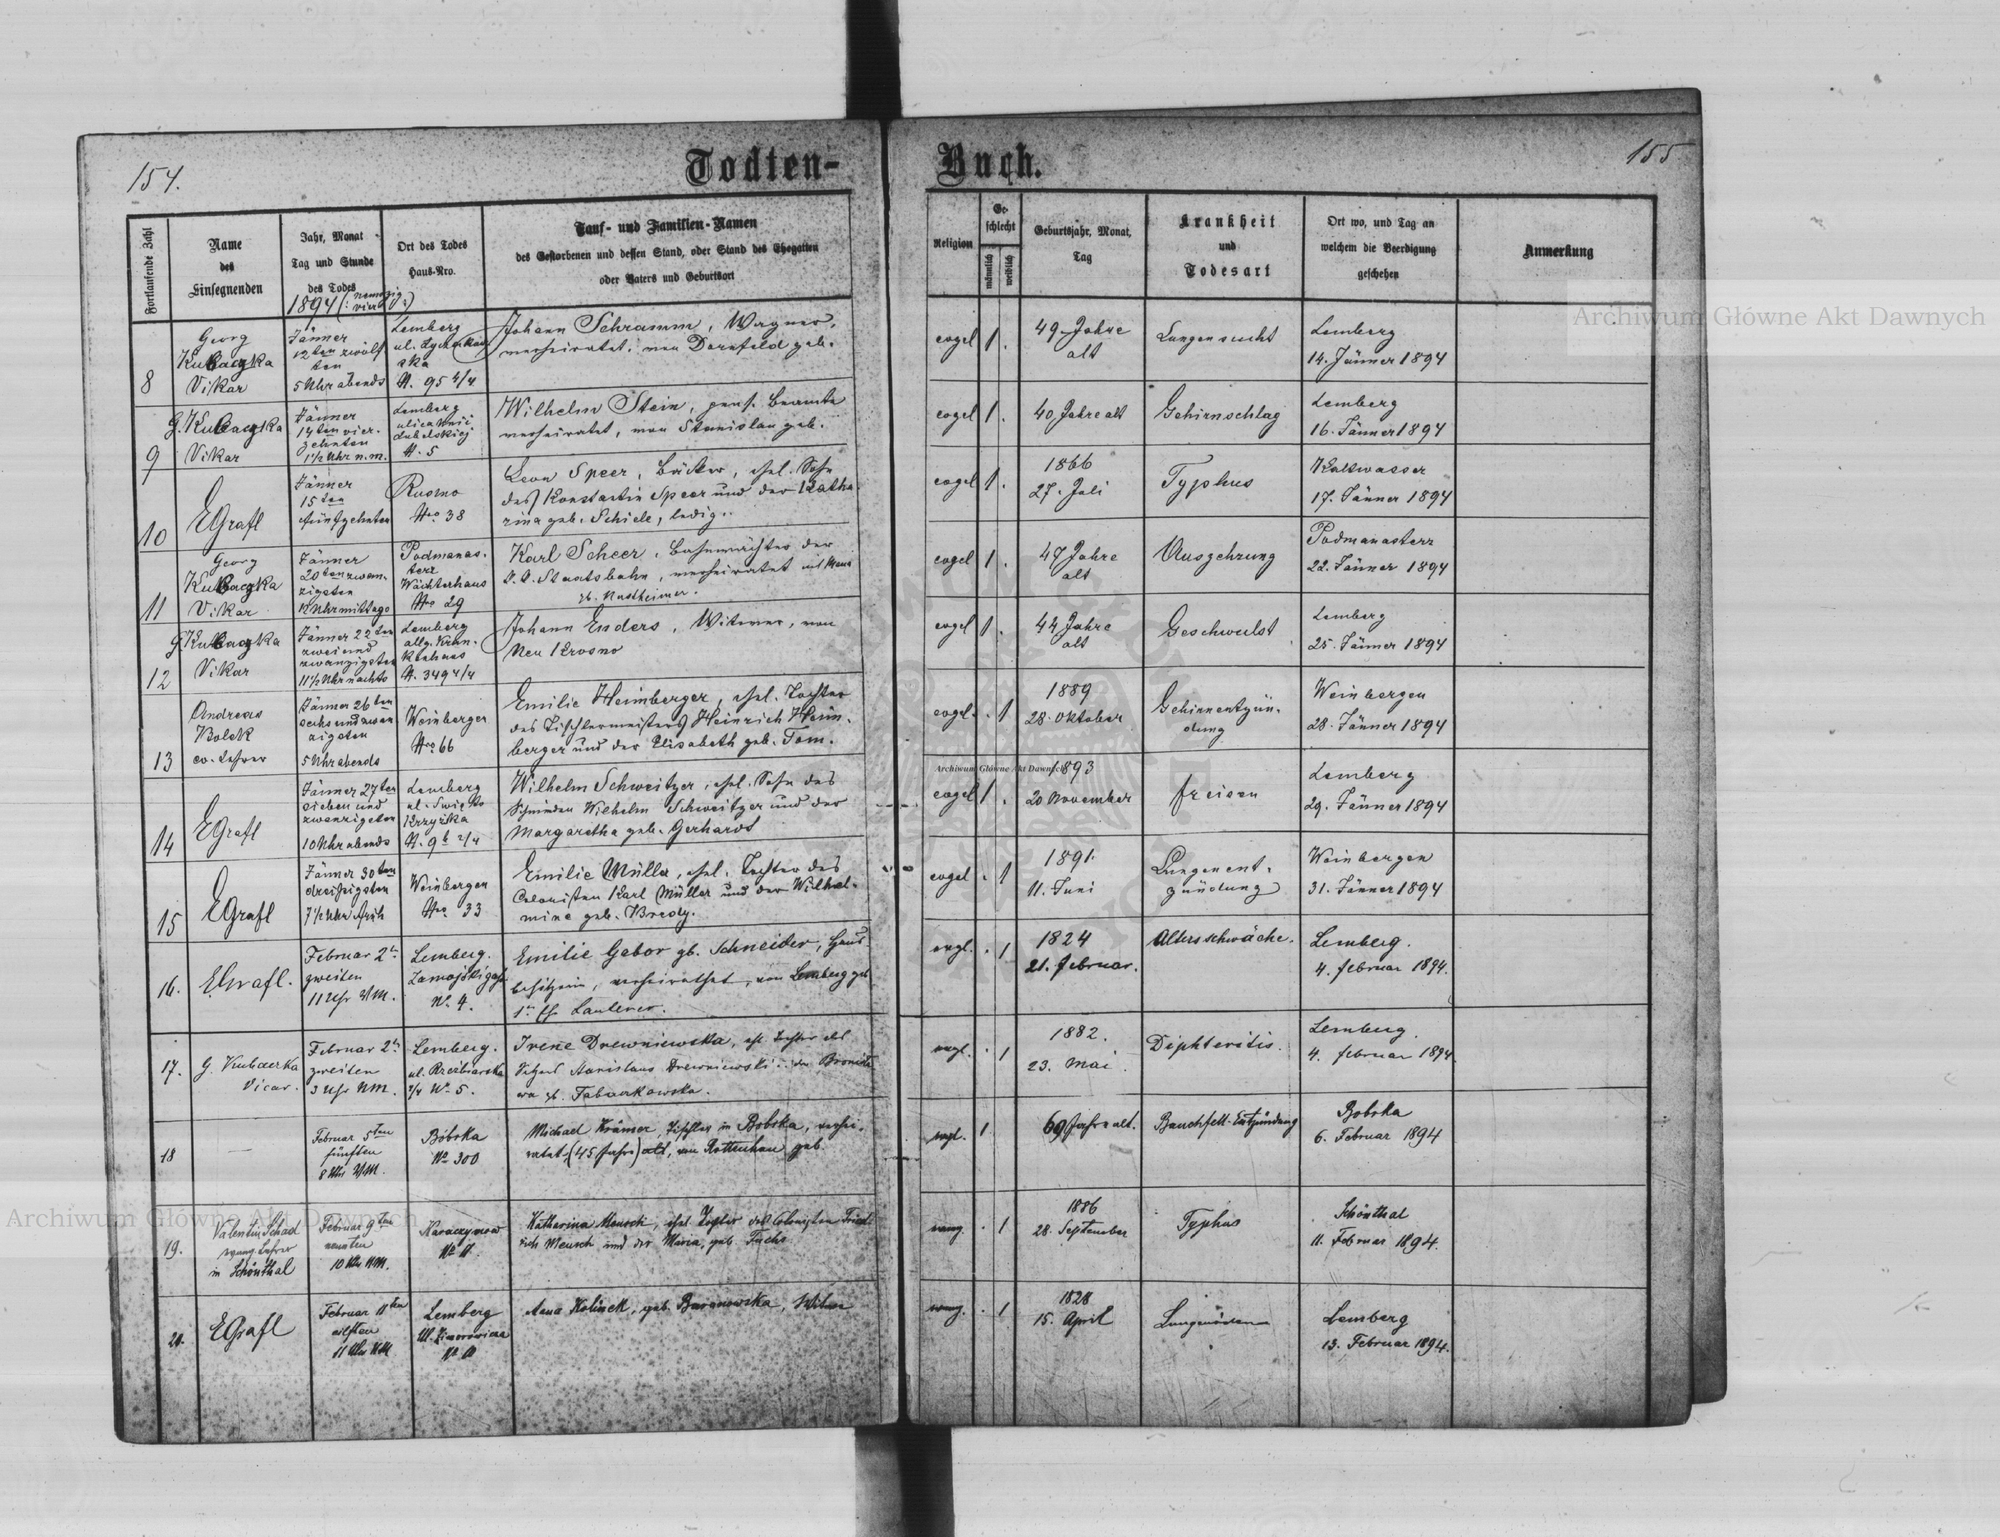 154.
Todten-
Buch.
155
Fortlaufende Zahl
Name
des
Einsegnenden
Jahr, Monat
Tag und Stunde
des Todes
Ort des Todes
Haus-Nro.
Tauf- und Familien-Namen
des Gestorbenen und dessen Stand, oder Stand des Ehegatten
oder Vaters und Geburtsort
Religion
Ge-
schlecht
männlich
weiblich
Geburtsjahr, Monat,
Tag
Krankheit
und
Todesart
Ort wo, und Tag an
welchem die Beerdigung
geschehen
Anmerkung
1894 (: neunzig
vier :)
8
Georg
Kubaczka
Vikar
Jänner
12ten zwölf
ten
5 Uhr abends
Lemberg
ul. Łyczakow
ska
N. 95 4/4
Johann Schramm, Wagner,
verheiratet, von Dornfeld geb.
evgel
1.
49 Jahre
alt
Lungensucht
Lemberg
14. Jänner 1894
9
G. Kubaczka
Vikar
Jänner
14ten vier-
zehnten
1 1/2 Uhr n.m.
Lemberg
ulica
N. 5
Wilhelm Stein, pens. Beamte
verheiratet, von Stanislau geb.
evgel
1.
40 Jahre alt
Gehirnschlag
Lemberg
16. Jänner 1894
10
EGrafl
Jänner
15ten
fünfzehnten
Rosno
Nro 38
Leon Speer, Bäcker, ehel. Sohn
des Konstantin Speer und der Katha
rina geb. Schiele, ledig.
evgel
1.
1866
27. Juli
Typhus
Kaltwasser
17. Jänner 1894
11
Georg
Kubaczka
Vikar
Jänner
20ten zwan-
zigsten
12 Uhr mittags
Podmanas-
terz
Wächterhaus
Nro 29
Karl Scheer, Bahnwächter der
k. k. Staatsbahn, verheiratet mit
gb. Nustheimer.
evgel
1.
47 Jahre
alt
Auszehrung
Podmanasterz
22. Jänner 1894
12
G. Kubaczka
Vikar
Jänner 22ten
zwei und
zwanzigsten
11 1/2 Uhr nachts
Lemberg
allg. Kran-
kenhaus
N. 349 4/4
Johann Enders, Witwer, von
Neu Krosno
evgel
1.
44 Jahre
alt
Geschwulst
Lemberg
25. Jänner 1894
13
Andreas
Bolek
ev. Lehrer
Jänner 26ten
sechs und zwan
zigsten
5 Uhr abends
Weinbergen
Nro 66
Emilie Heimberger, ehel. Tochter
des Tischlermeisters Heinrich Heim-
berger und der Elisabeth geb. Tom.
evgel.
. 1
1889
28. Oktober
Gehirnentzün-
dung
Weinbergen
28. Jänner 1894
14
EGrafl
Jänner 27ten
sieben und
zwanzigsten
10 Uhr abends
Lemberg
ul. Swięto
Krzyżka
N. 9b 2/4
Wilhelm Schweitzer, ehel. Sohn des
Schmieden Wilhelm Schweitzer und der
Margaretha geb. Gerhardt
evgel
1.
1893
20 November
freisen
Lemberg
29. Jänner 1894
15
EGrafl
Jänner 30ten
dreißigsten
7 1/2 Uhr früh
Weinbergen
Nro 33
Emilie Müller, ehel. Tochter des
Colonisten Karl Müller und der Wilhel-
mine geb. Bredy.
evgel
. 1
1891.
11. Juni
Lungenent-
zündung
Weinbergen
31. Jänner 1894
16.
EGrafl.
Februar 2ten
zweiten
11 Uhr VM.
Lemberg.
Zamojskigasse
No 4.
Emilie Gebor gb. Schneider, Haus-
besitzerin, verheirathet, von Lemberg geb
evgl.
. 1
1824
21. Februar.
Altersschwäche.
Lemberg.
4. Februar 1894.
17.
G. Kubaczka
Vicar.
Februar 2ten
zweiten
3 Uhr NM.
Lemberg.
ul. Rzeźbiarska
2/4 No 5.
Irene Drewniewska, eh. Tochter des
Stanislaus Drewniewski u. der Bronisla
wa gb. Fabiarkowska.
evgl.
. 1
1882.
23. Mai.
Diphteritis.
Lemberg.
4. Februar 1894.
18
—
Februar 5ten
fünften
8 Uhr VM.
Bóbrka
No 300
Michael Krämer Tischler in Bobrka, verhei-
ratet, (45 Jahre) alt, von Rottenhan geb.
evgl.
1
69 Jahre alt.
Bauchfell-Entzündung
Bobrka
6. Februar 1894
19.
Valentin Schad
evang. Lehrer
in Schönthal
Februar 9ten
neunten
10 Uhr NM.
Karaczynow
No 11.
Katharina Mensch, ehel Tochter des Colonisten Fried-
rich Mensch und der Maria, geb Fuchs
evang.
. 1
1886
28. September
Typhus
Schönthal
11. Februar 1894.
20.
EGrafl
Februar 11ten
eilften
11 Uhr NM
Lemberg
Ul. Zimorowicza
Anna Kolinek, geb. Baranowska, Witwe
evang.
. 1
1828
15. April
Lungenödem
Lemberg
13. Februar 1894.
Archiwum Główne Akt Dawnych
Archiwum Główne Akt Dawnych
Archiwum Główne Akt Dawnych